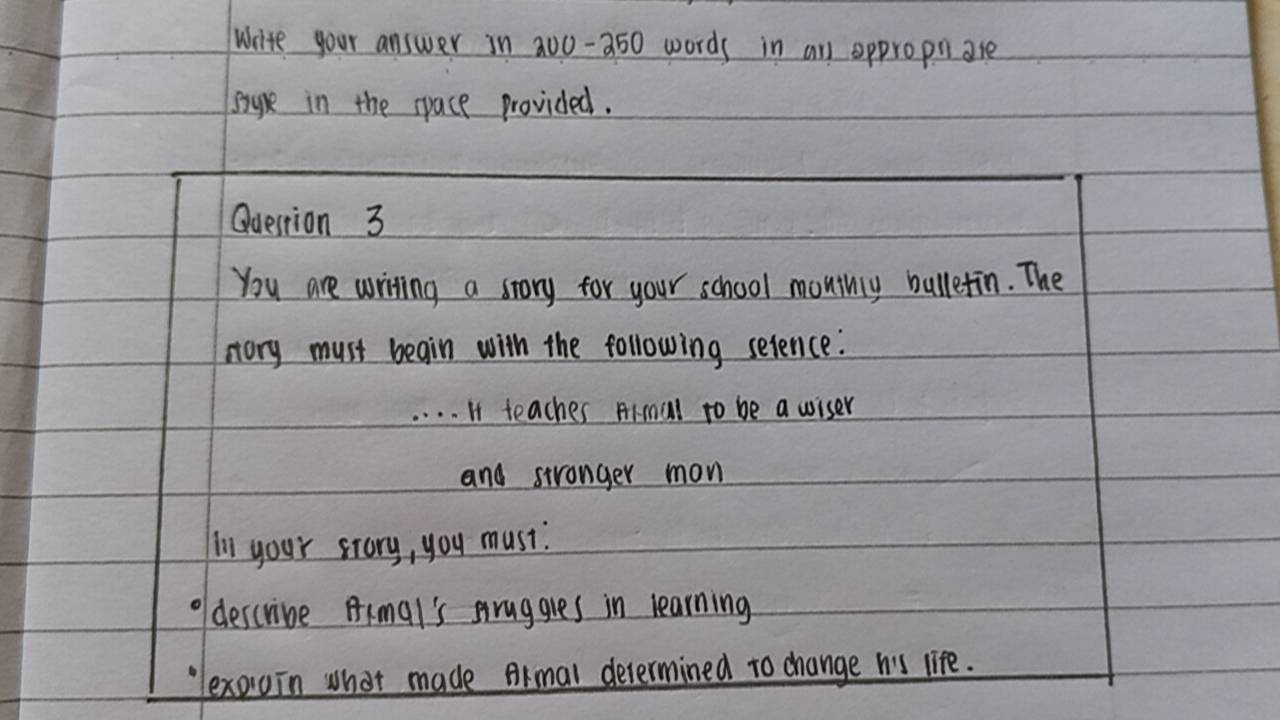 Write your answer in 200-250 words in an appropriate
style in the space provided.
Question 3
You are writing a story for your school monthly bulletin. The
story must begin with the following setence:
....It teaches Akmal to be a wiser
and stronger man
In your story, you must:
• describe Akmal's struggles in learning
• explain what made Akmal determined to change his life.